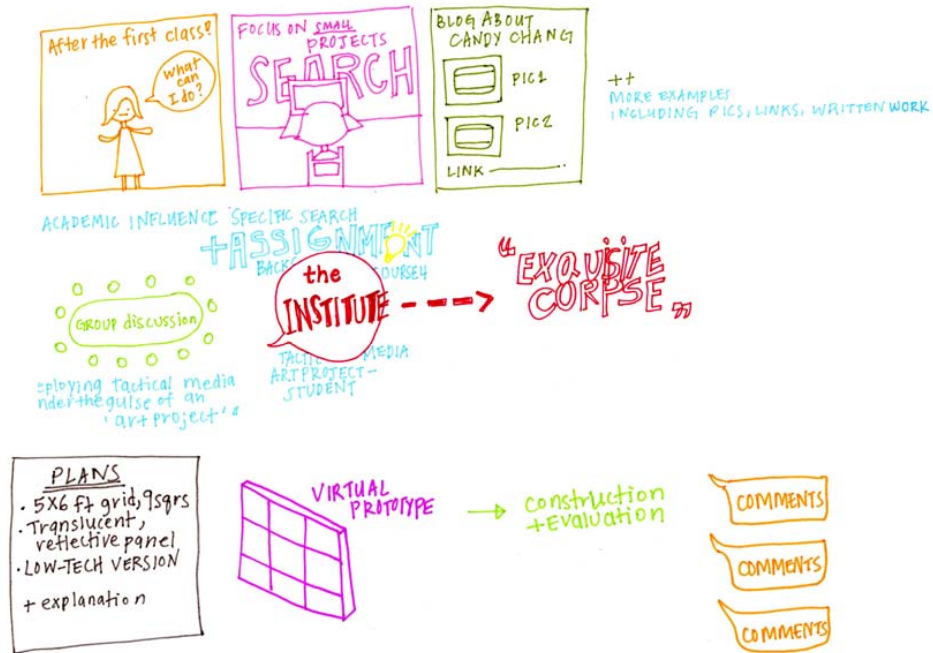 After the first class?
What
can
I do?
FOCUS ON SMALL
PROJECTS
SEARCH
BLOG ABOUT
CANDY CHANG
PIC1
PIC2
LINK
++
MORE EXAMPLES
INCLUDING PICS, LINKS, WRITTEN WORK
ACADEMIC INFLUENCE SPECIFIC SEARCH
+ASSIGNMENT
the
INSTITUTE
"EXQUISITE
CORPSE"
GROUP discussion
tactical media
guise of an
'art project'"
MEDIA
ARTPROJECT-
STUDENT
PLANS
· 5X6 ft grid, 9sqrs
· Translucent,
reflective panel
· LOW-TECH VERSION
+ explanation
VIRTUAL
PROTOTYPE
construction
+Evaluation
COMMENTS
COMMENTS
COMMENTS